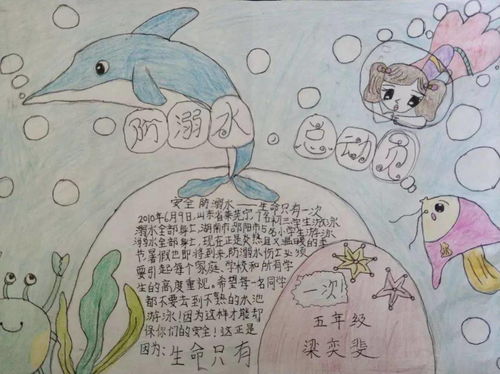 防溺水
总动员
安全防溺水——生命只有一次
2010年6月9日,山东省莱芜
名初三学生游泳
溺水全部身亡,湖南
邵阳市5名小学生游泳
溺水全部身亡,现在正是炎热
温暖的季
节,暑假也即将到来,防溺水
必须
要引起每个家庭、学校和所有学
生的高度重视。希望每一名同学
都不要去到不熟的水池
游泳!因为这样才能
保你们的安全!这正是
因为:生命只有
一次!
五年级
梁奕斐